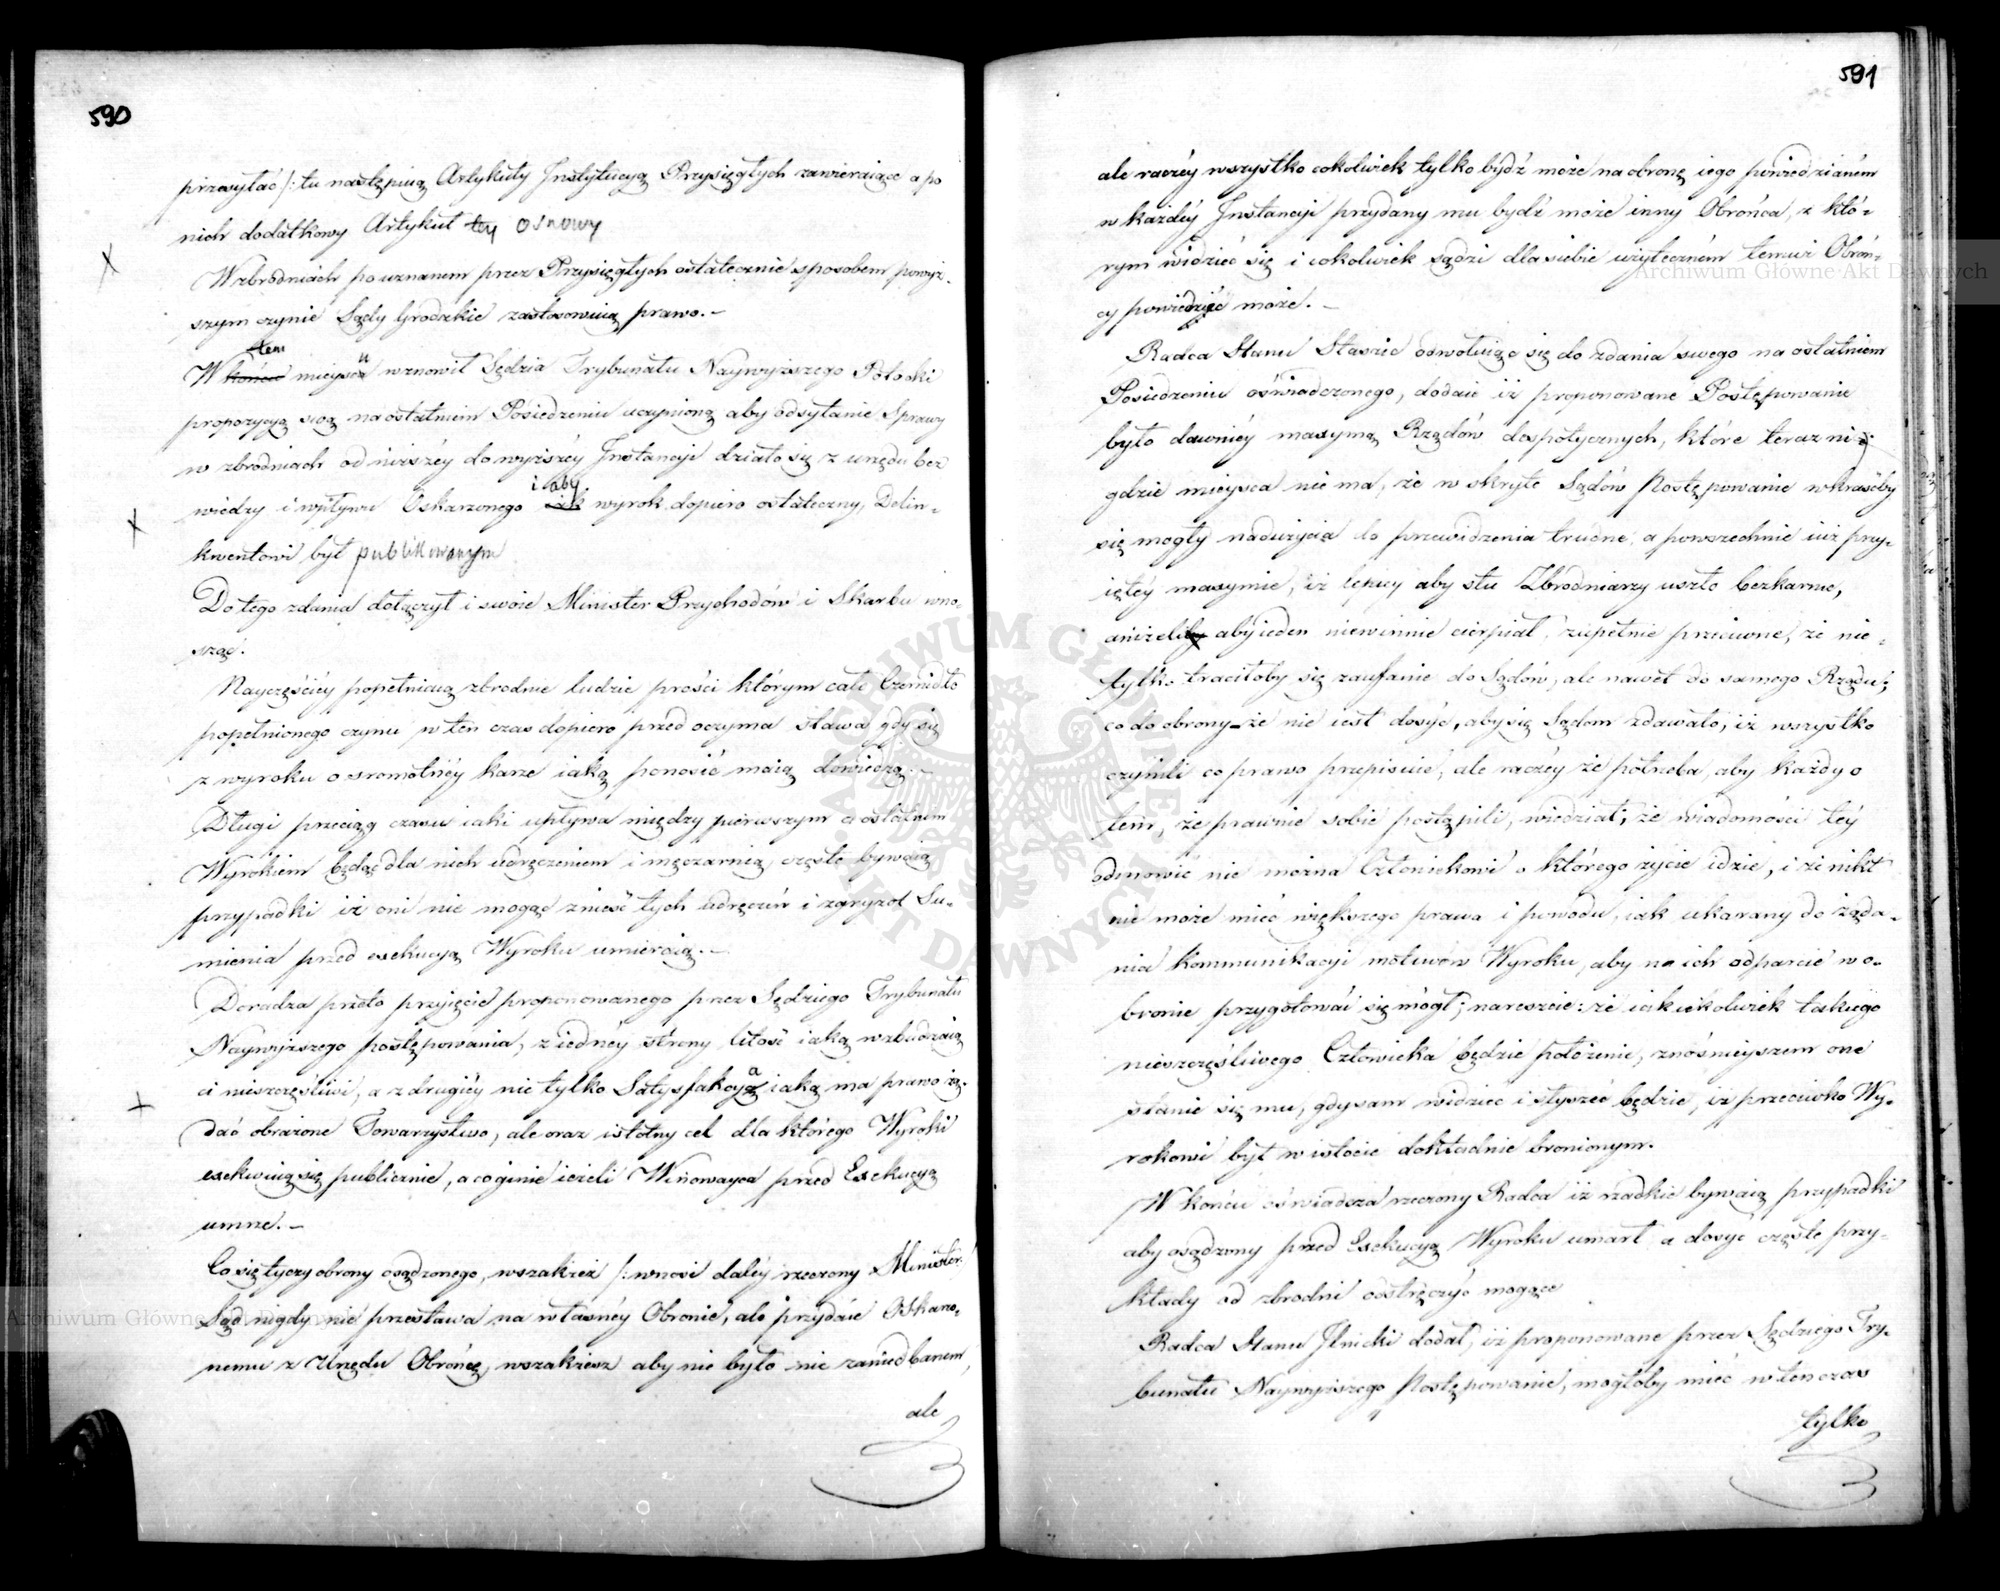 590
przesyłać /: tu następuią Artykuły Instytucyą Przysięgłych zawieraiące a po
nich dodatkowy Artykuł tey osnowy
W zbrodniach po uznanem przez Przysięgłych ostatecznie sposobem powyż-
szym czynie Sądy Grodzkie zastosowuią prawo.-
W tem mieyscu wznowił Sędzia Trybunału Naywyższego Potocki
propozycyą swą na ostatniem Posiedzeniu uczynioną aby odsyłanie Sprawy
w zbrodniach od niższéy do wyższéy Instancyi działo się z urzędu bez
wiedzy i wpływu Oskarzonego i aby wyrok dopiero ostateczny, Delin-
kwentowi był publikowanym
Do tego zdania dołączył i swoie Minister Przychodów i Skarbu wno-
sząc.
Nayczęściéy popełniaią zbrodnie ludzie prości którym całe Czernidło
popełnionego czynu w ten czas dopiero przed oczyma stawa gdy się
z wyroku o sromotnéy karze iaką ponosić maią dowiedzą.-
Długi przeciąg czasu iaki upływa między pierwszym a ostatnim
Wyrokiem będąc dla nich udręczeniem i męczarnią, częste bywaią
przypadki iż oni nie mogąc znieść tych udręczeń i zgryzot Su-
mienia przed exekucyą Wyroku umieraią.-
Doradza przeto przyięcie proponowanego przez Sędziego Trybunału
Naywyższego postępowania, z iednéy strony litość iaką wzbudzaią
ci nieszczęśliwi, a z drugiéy nie tylko Satysfakcya iaką ma prawo żą-
dać obrażone Towarzystwo, ale oraz istotny cel dla którego Wyroki
exekwuią się publicznie, a co ginie ieżeli Winowayca przed Exekucyą
umrze.-
Co się tyczy obrony osądzonego, wszakżeż /: wnosi daléy rzeczony Minister:/
Sąd nigdy nie przestawa na własnéy Obronie, ale przydaie Oskarzo-
nemu z Urzędu Obrońcę, wszakżesz aby nie było nic zaniedbanem,
ale
591
ale raczéy wszystko cokolwiek tylko bydź może na obronę iego powiedzianém
w każdéy Instancyi przydany mu bydź może inny Obrońca, z któ-
rym widzieć się i cokolwiek sądzi dla siebie użyteczném temuż Obroń-
cy powiedzieć może.-
Radca Stanu Staszic odwołuiąc się do zdania swego na ostatniem
Posiedzeniu oświadczonego, dodaie iż proponowane Postępowanie
było dawniéy maxymą Rządów despotycznych, które teraz ni-
gdzie mieysca nie ma, że w skryte Sądów Postępowanie wkraśćby
się mogły nadużycia do przewidzenia trudne, a powszechnie iuż przy-
iętéy maxymie, iż lepiey aby stu Zbrodniarzy uszło bezkarnie,
aniżeli aby ieden niewinnie cierpiał, zupełnie przeciwne, że nie-
tylko traciłoby się zaufanie do Sądów, ale nawet do samego Rządu;
co do obrony_że nie iest dosyć, aby się Sądom zdawało, iż wszystko
czynili co prawo przepisuie, ale raczéy że potrzeba, aby każdy o
tem, że prawnie sobie postąpili, wiedział; że wiadomości téy
odmówić nie można Człowiekowi o którego życie idzie, i że nikt
nie może mieć większego prawa i powodu, iak ukarany do żąda-
nia kommunikacyi motiwów Wyroku, aby na ich odparcie w o-
bronie przygotować się mógł; nareszcie: że iakiekolwiek takiego
nieszczęśliwego Człowieka będzie położenie, znośnieyszem one
stanie się mu, gdy sam widzieć i słyszeć będzie, iż przeciwko Wy-
rokowi był w istocie dokładnie bronionym.
W końcu oświadcza rzeczony Radca iż rzadkie bywaią przypadki
aby osądzony przed Exekucyą Wyroku umarł, a dosyć częste przy-
kłady od zbrodni odstręczyć mogące
Radca Stanu Ilnicki dodał, iż proponowane przez Sędziego Try-
bunału Naywyższego Postępowanie, mogłoby mieć w ten czas
tylko
Archiwum Główne Akt Dawnych